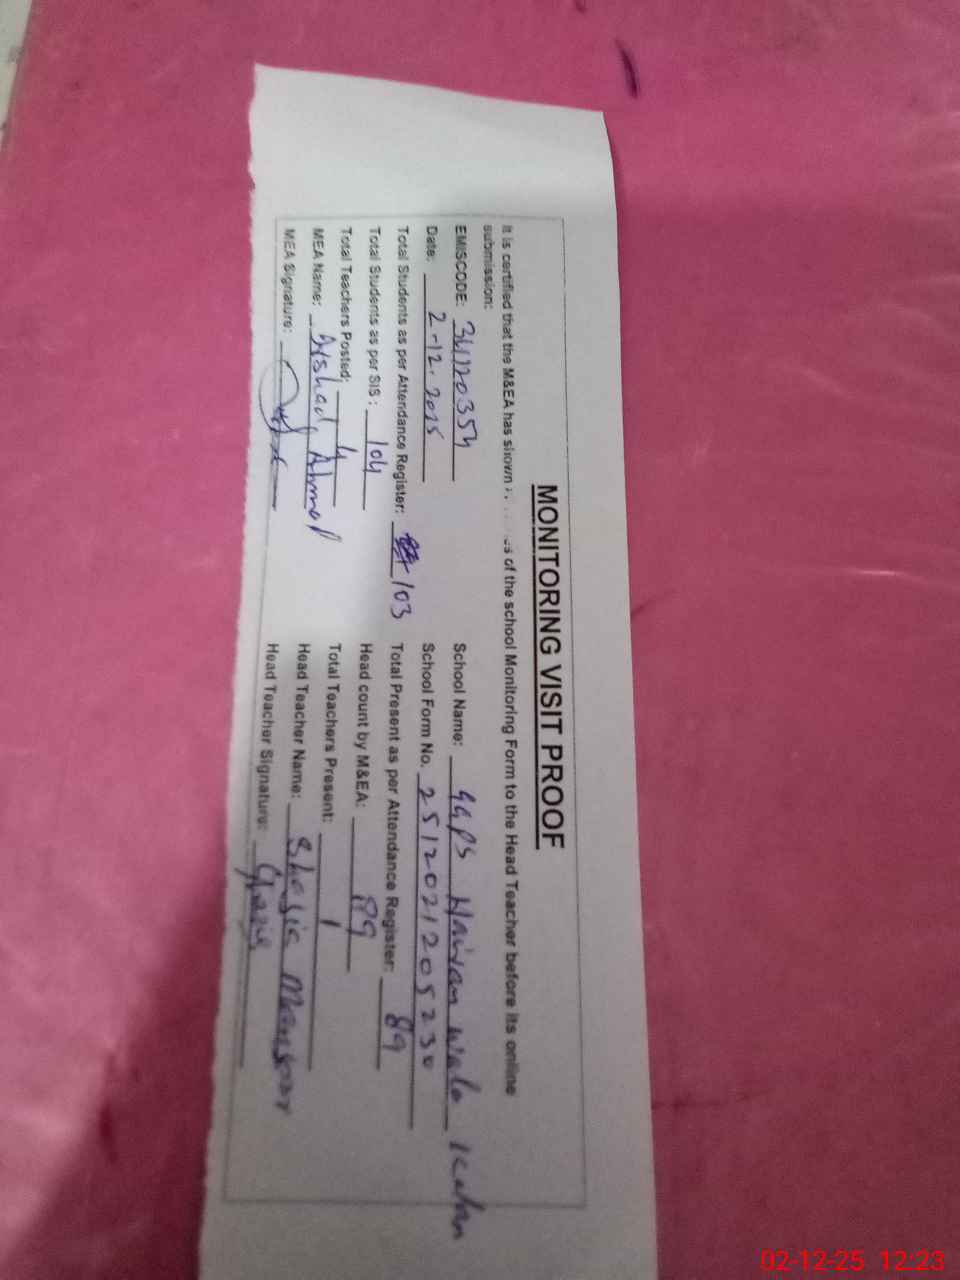 MONITORING VISIT PROOF
It is certified that the M&EA has shown of the school Monitoring Form to the Head Teacher before its online
submission:
EMISCODE: 34120354 School Name: GGPS Wala Kalan
Date: 2-12-2025 School Form No. 2512021205230
Total Students as per Attendance Register: 103 Total Present as per Attendance Register: 89
Total Students as per SIS: 104 Head count by M&EA: 89
Total Teachers Posted: 4 Total Teachers Present: 1
MEA Name: Arshad Ahmad Head Teacher Name: Shazia Mansoor
MEA Signature: Head Teacher Signature: Shazia
02-12-25 12:23